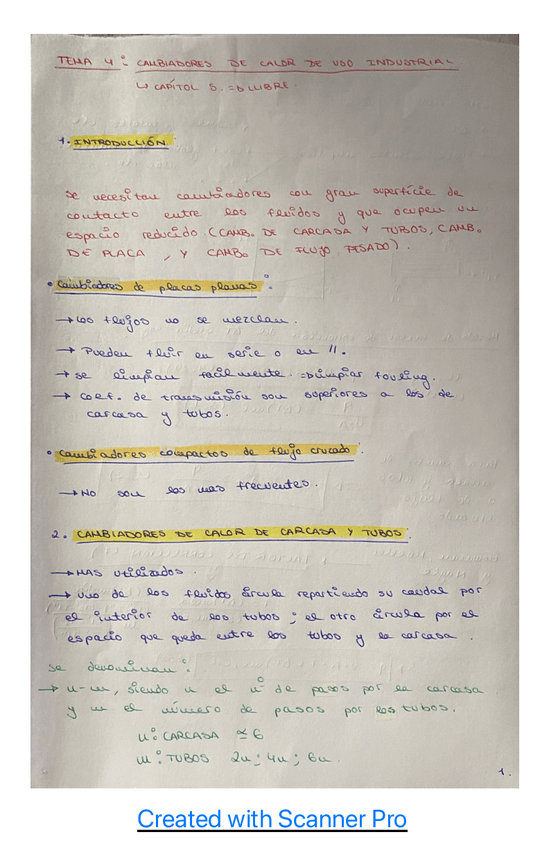 TEMA 4: CAMBIADORES DE CALOR DE USO INDUSTRIAL
↳ CAPÍTOL 5. ⇒ LLIBRE.
1. INTRODUCCIÓN
Se necesitan cambiadores con gran superfície de
contacto entre los fluidos y que ocupen un
espacio reducido (CAMB. DE CARCASA Y TUBOS, CAMB.
DE PLACA, Y CAMB. DE FLUJO PESADO).
• Cambiadores de placas planas:
→ Los flujos no se mezclan.
→ Pueden fluir en serie o en //.
→ se limpian fácilmente. ⇒ limpiar fouling.
→ coef. de transmisión son superiores a los de
carcasa y tubos.
• Cambiadores compactos de flujo cruzado.
→ No son los mas frecuentes.
2. CAMBIADORES DE CALOR DE CARCASA Y TUBOS.
→ MAS utilizados.
→ Uno de los fluidos circula repartiendo su caudal por
el interior de los tubos; el otro circula por el
espacio que queda entre los tubos y la carcasa.
Se denominan:
→ n-m, siendo n el nº de pasos por la carcasa
y m el número de pasos por los tubos.
n: CARCASA ≃ 6
m: TUBOS 2n; 4n; 6n.
1.
Created with Scanner Pro